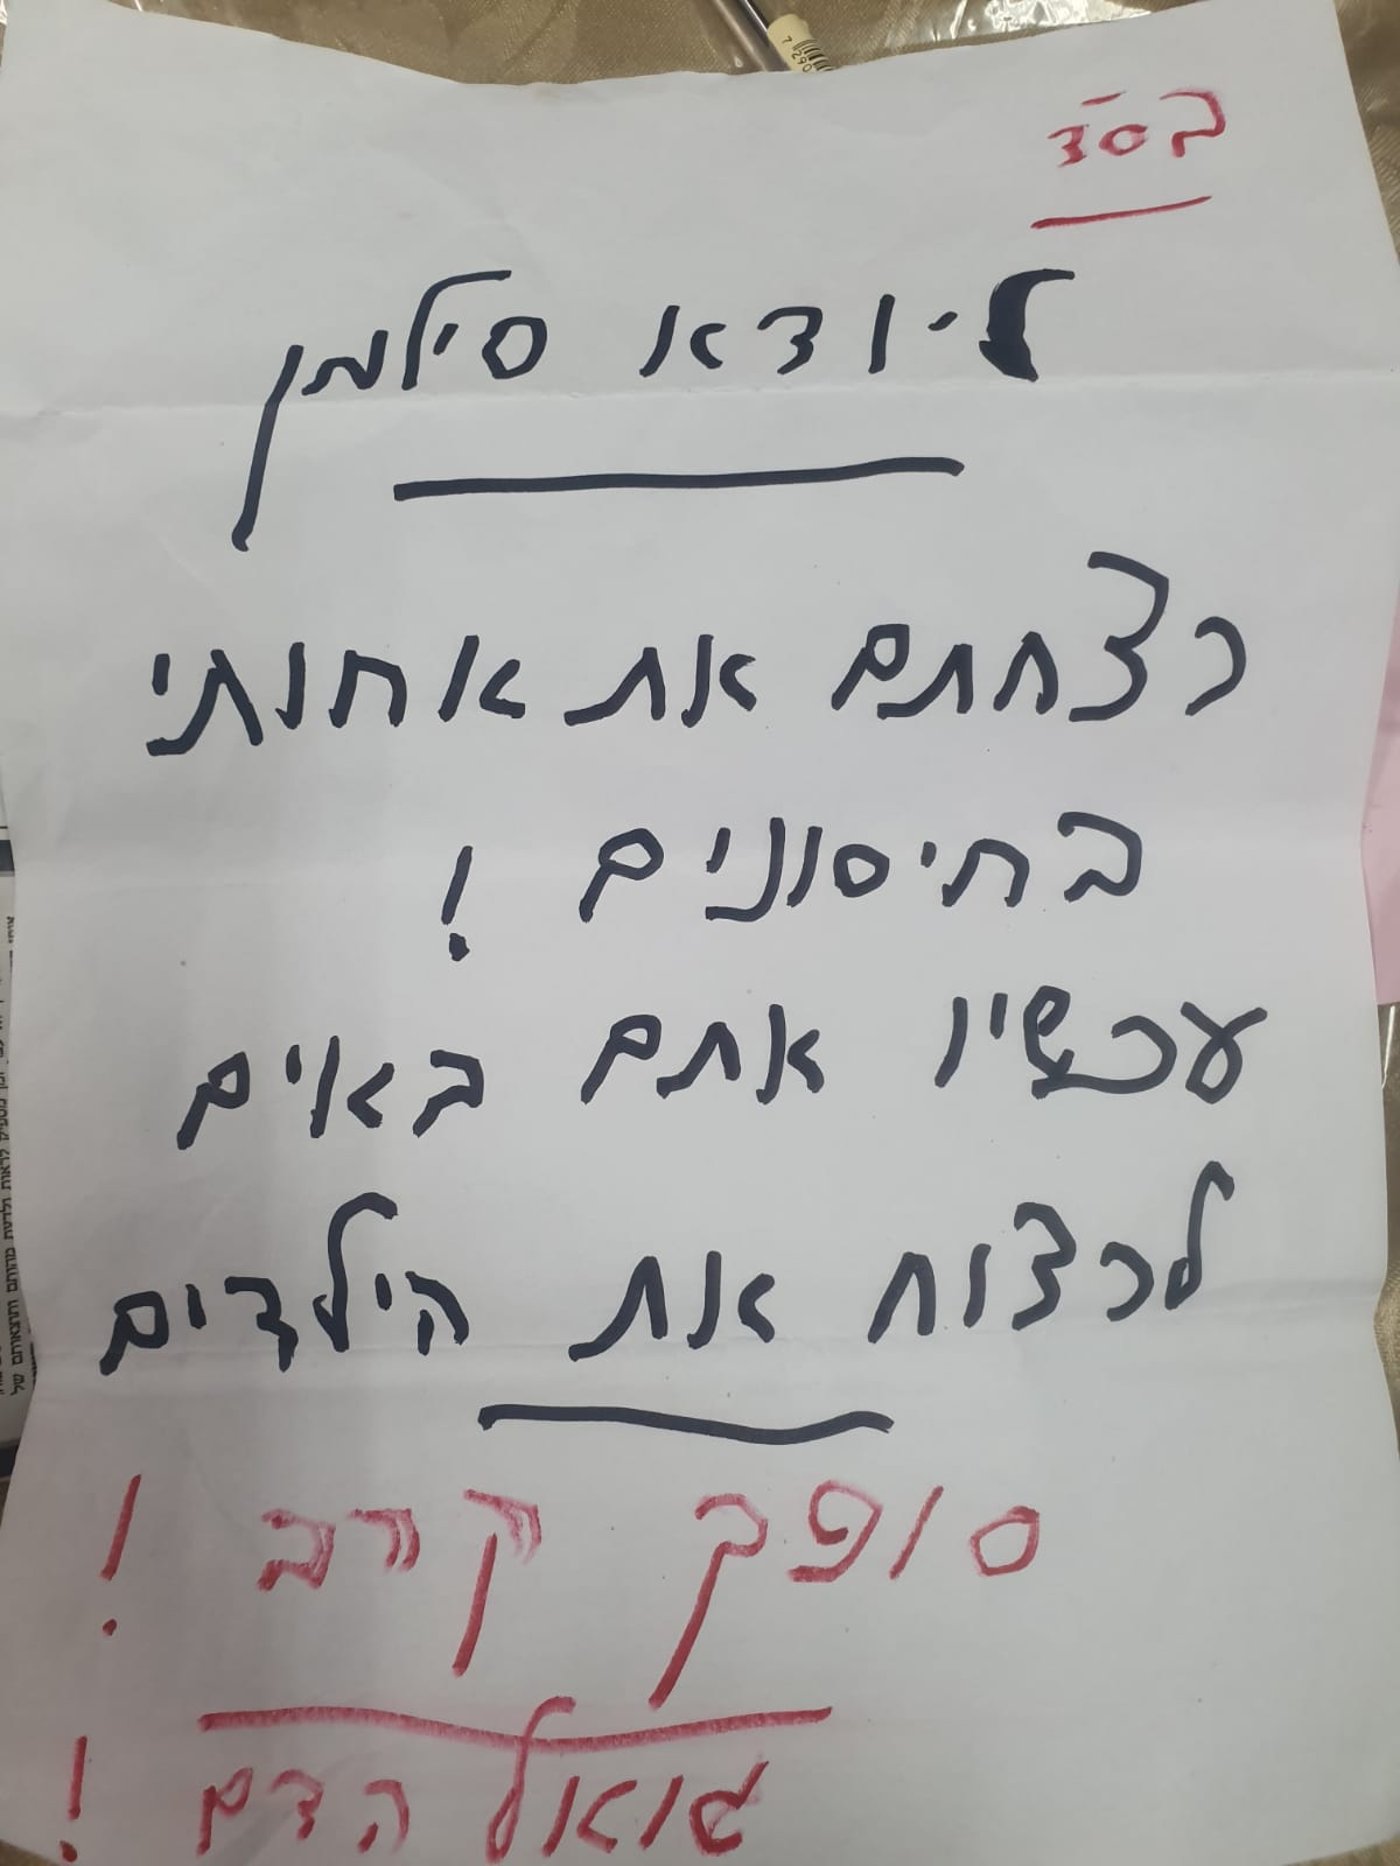 בסד
ליודא סילמן
רצחתם את אחותי
בחיסונים !
עכשיו אתם באים
לרצוח את הילדים
סופך קרב !
גואל הדם !